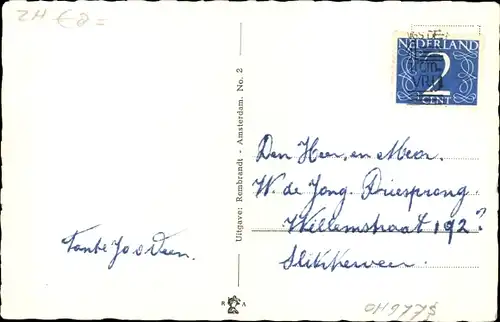 ZH € 2=
NEDERLAND
2
CENT
Uitgave: Rembrandt - Amsterdam. No. 2
Den Heer en Mevr.
W. de Jong. Driesprong.
Willemstraat 192?
Slikkerveer.
Tante Jo v Veen.
R A
OH9773